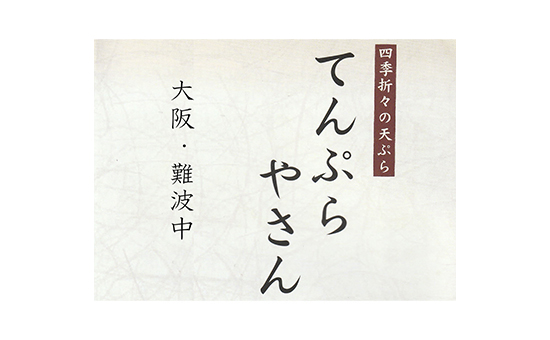 四季折々の天ぷら
てんぷら
やさん
大阪・難波中